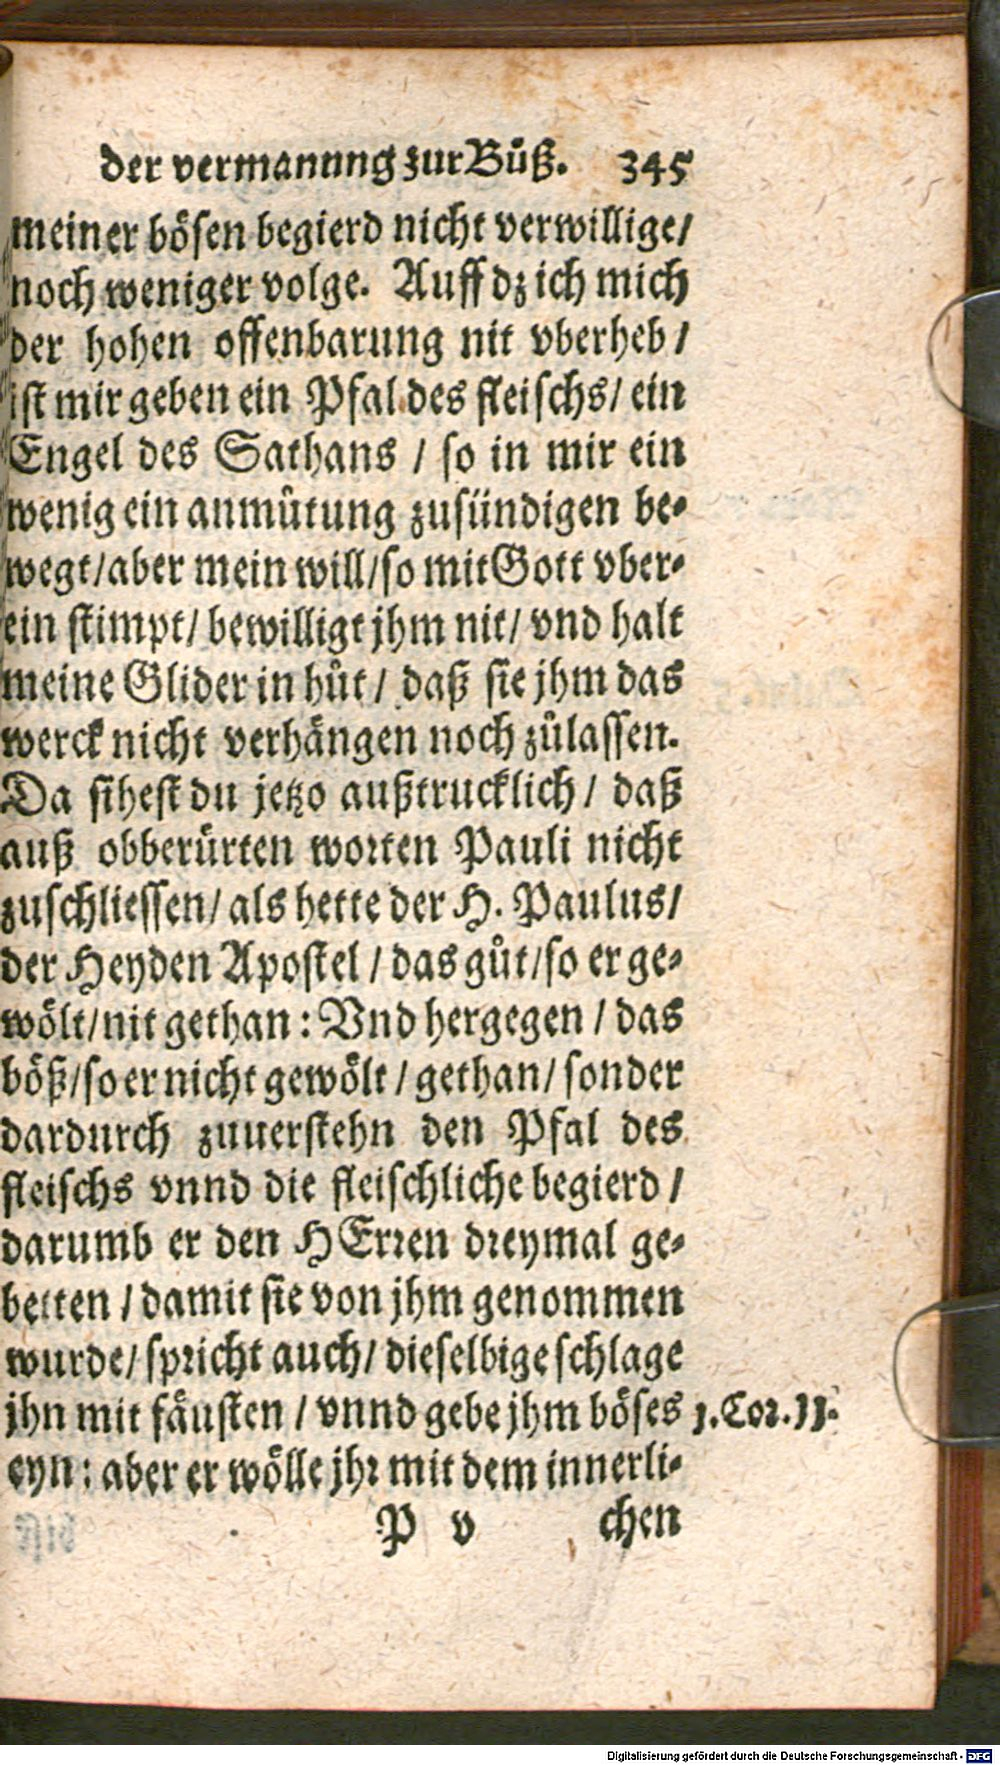 der vermanung zur Bůß. 345
meiner bösen begierd nicht verwillige/
noch weniger volge. Auff dz ich mich
der hohen offenbarung nit vberheb /
ist mir geben ein Pfal des fleischs/ ein
Engel des Sathans / so in mir ein
wenig ein anmůtung zusündigen be-
wegt/ aber mein will/ so mit Gott vber-
ein stimpt/ bewilligt jhm nit/ vnd halt
meine Glider in hůt/ daß sie jhm das
werck nicht verhängen noch zůlassen.
Da sihest du jetzo außtrucklich/ daß
auß obberürten worten Pauli nicht
zuschliessen/ als hette der H. Paulus/
der Heyden Apostel / das gůt/ so er ge-
wölt/ nit gethan: Vnd hergegen / das
böß/ so er nicht gewölt / gethan/ sonder
dardurch zuuerstehn den Pfal des
fleischs vnnd die fleischliche begierd /
darumb er den HErren dreymal ge-
betten / damit sie von jhm genommen
wurde/ spricht auch/ dieselbige schlage
jhn mit fäusten / vnnd gebe jhm böses 1. Cor. 11.
eyn: aber er wölle jhr mit dem innerli-
P v chen
Digitalisierung gefördert durch die Deutsche Forschungsgemeinschaft - DFG